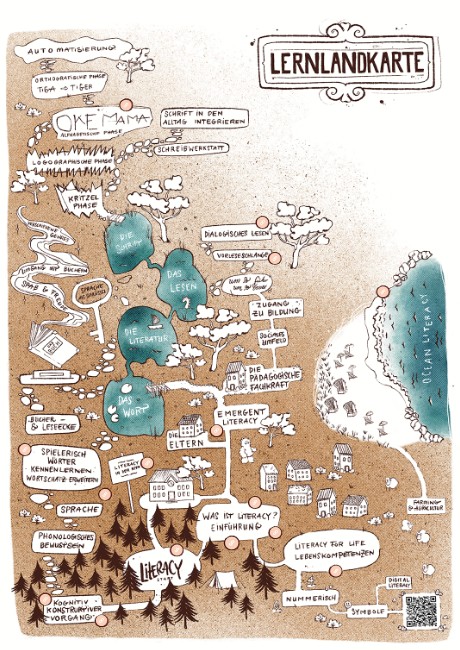 LERNLANDKARTE
AUTOMATISIERUNG
ORTHOGRAFISCHE PHASE
TIGA → TIGER
OKE MAMA
ALPHABETISCHE PHASE
SCHRIFT IN DEN
ALLTAG INTEGRIEREN
SCHREIBWERKSTATT
LOGOGRAPHISCHE PHASE
KRITZEL
PHASE
DIE
SCHRIFT
DIALOGISCHES LESEN
VORLESESCHLANGE
UMGANG MIT BÜCHERN
SPAß & FREUDE
SPRACHE
DAS
LESEN
ZUGANG
ZU BILDUNG
SOZIALES
UMFELD
DIE
LITERATUR
DIE
PÄDAGOGISCHE
FACHKRAFT
OCEAN LITERACY
DAS
WORT
BÜCHER-
& LESEECKE
DIE
ELTERN
EMERGENT
LITERACY
SPIELERISCH
WÖRTER
KENNENLERNEN
WORTSCHATZ ERWEITERN
LITERACY
IN DER
SPRACHE
WAS IST LITERACY?
EINFÜHRUNG
FARMING
PHONOLOGISCHES
BEWUSSTSEIN
LITERACY
LITERACY FOR LIFE
LEBENSKOMPETENZEN
KOGNITIV
KONSTRUKTIVER
VORGANG
NUMMERISCH
SYMBOLE
DIGITAL
LITERACY